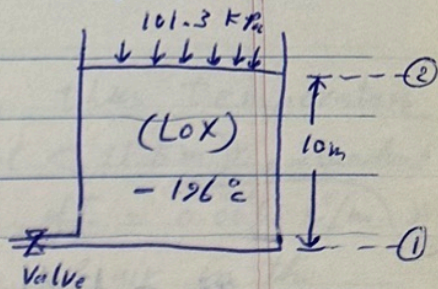 101.3 KPa
②
(LOX)
10m
-196°c
①
Valve